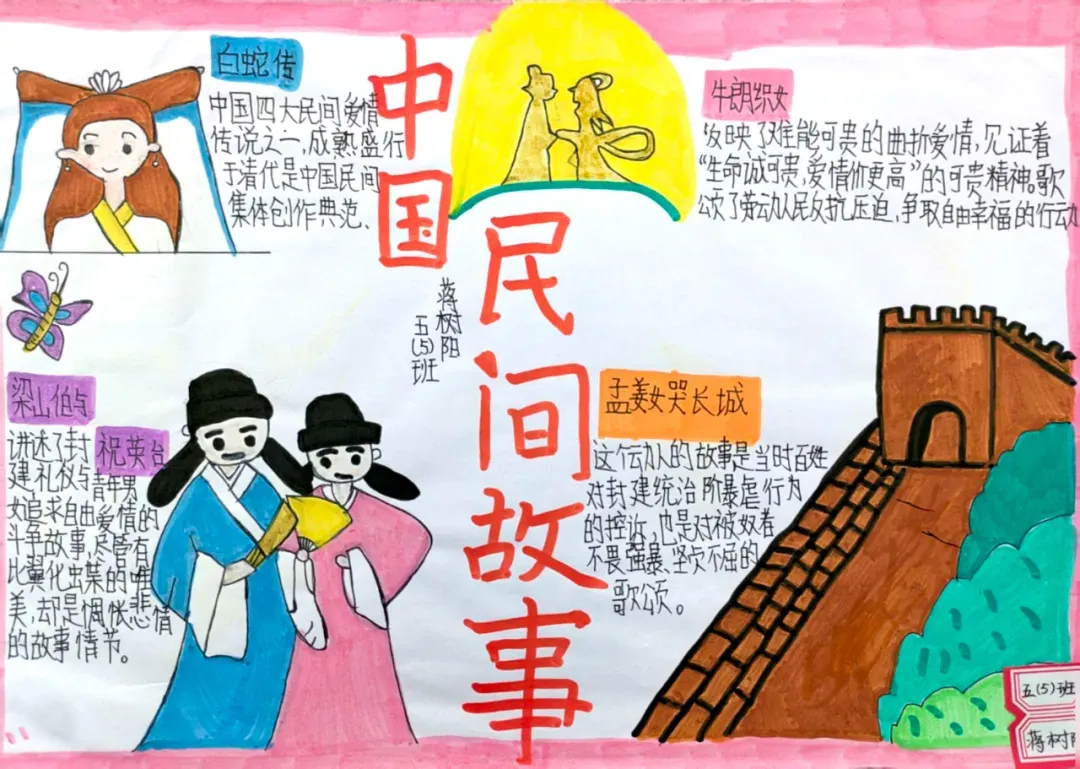 中国
民间故事
蒋树阳
五(5)班
白蛇传
中国四大民间爱情
传说之一,成熟盛行
于清代是中国民间
集体创作典范、
牛朗织女
反映了难能可贵的曲折爱情,见证着
“生命诚可贵,爱情价更高”的可贵精神。歌
颂了劳动人民反抗压迫、争取自由幸福的行动
梁山伯与
祝英台
讲述了封
建礼仪与青年男
女追求自由爱情的
斗争故事,尽管有
比翼化出茧的唯
美,却是惆怅悲情
的故事情节。
孟姜女哭长城
这个动人的故事是当时百姓
对封建统治阶暴虐行为
的控诉,也是对被奴着
不畏强暴、坚贞不屈的
歌颂。
五(5)班
蒋树阳